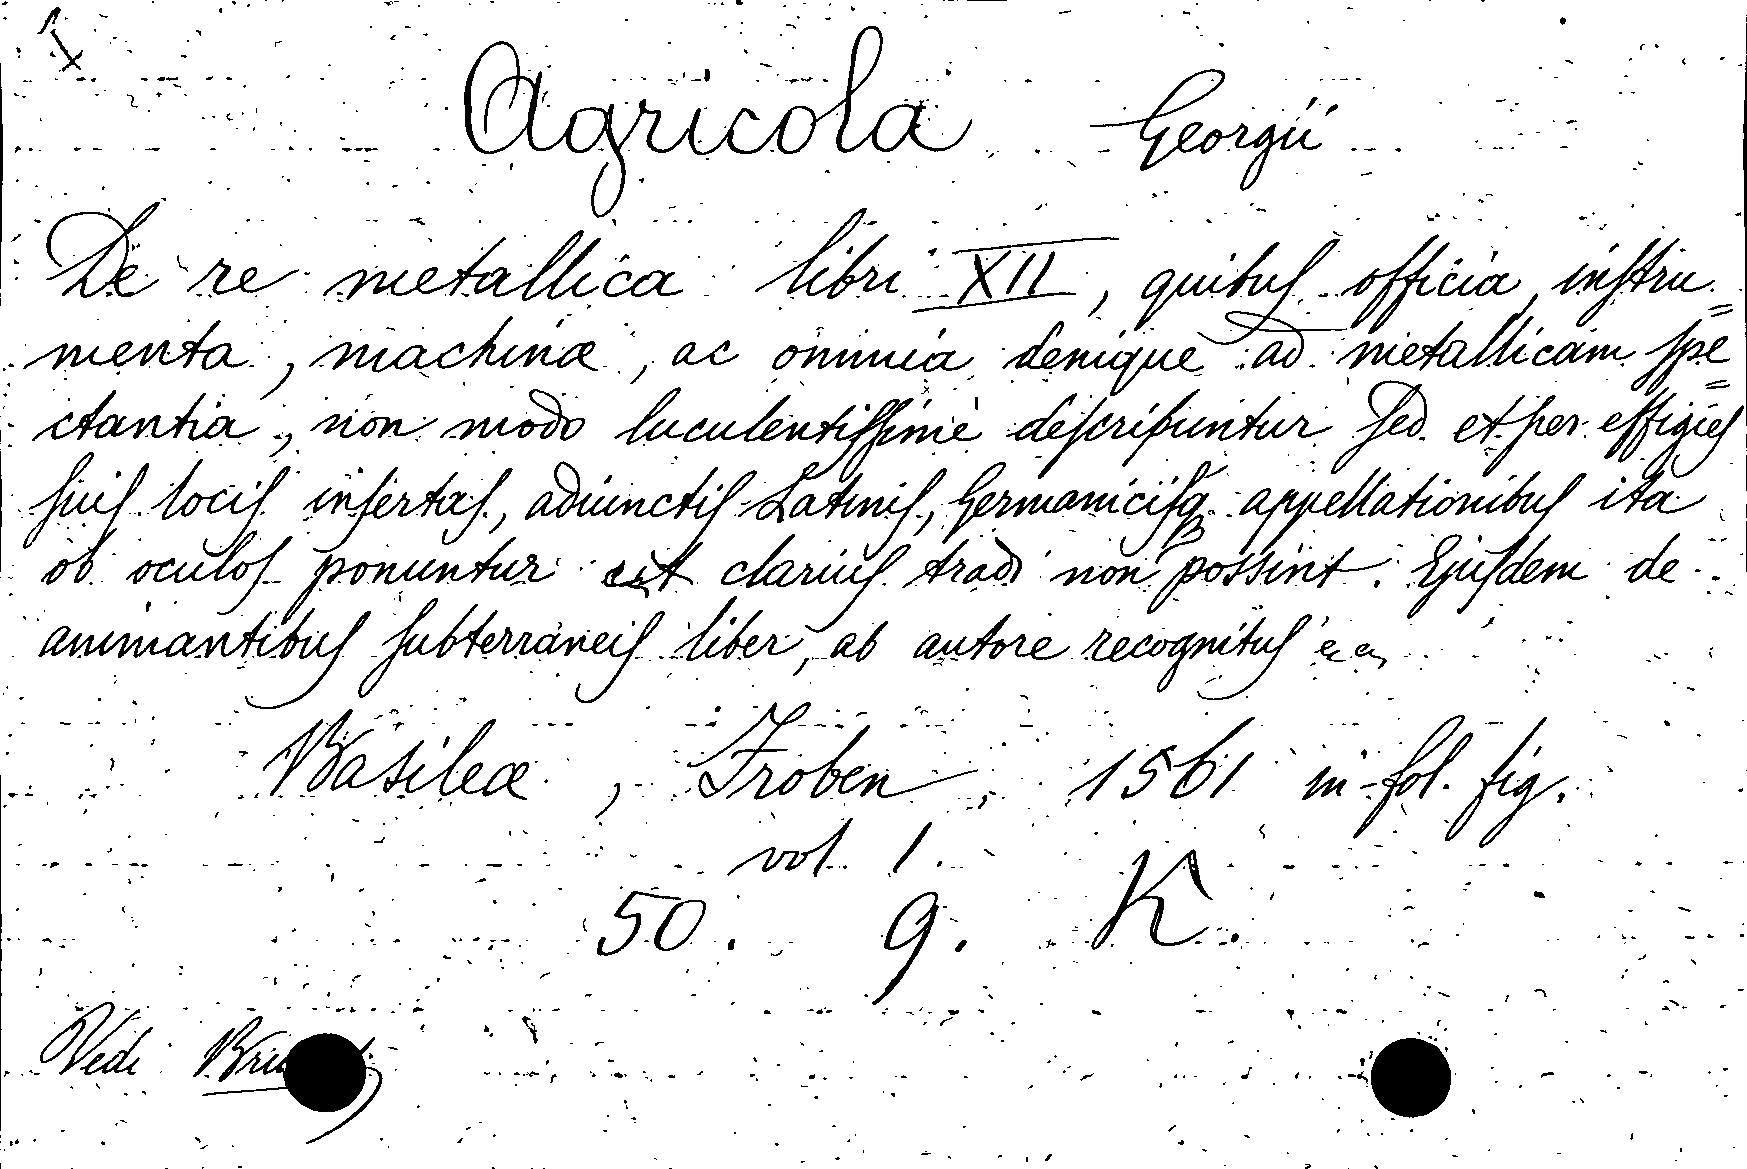 1
Agricola Georgii
De re metallica libri XII, quibus officia, instru=
menta, machinæ, ac omnia denique ad metallicam spe=
ctantia, non modo luculentissimè describuntur sed et per effigies
suis locis insertas, adiunctis Latinis, Germanicisq. appellationibus ita
ob oculos ponuntur ut clarius tradi non possint. Ejusdem de
animantibus subterraneis liber, ab autore recognitus
Basileæ, Froben, 1561 in-fol. fig.
vol. 1.
50. 9. K.
Vedi